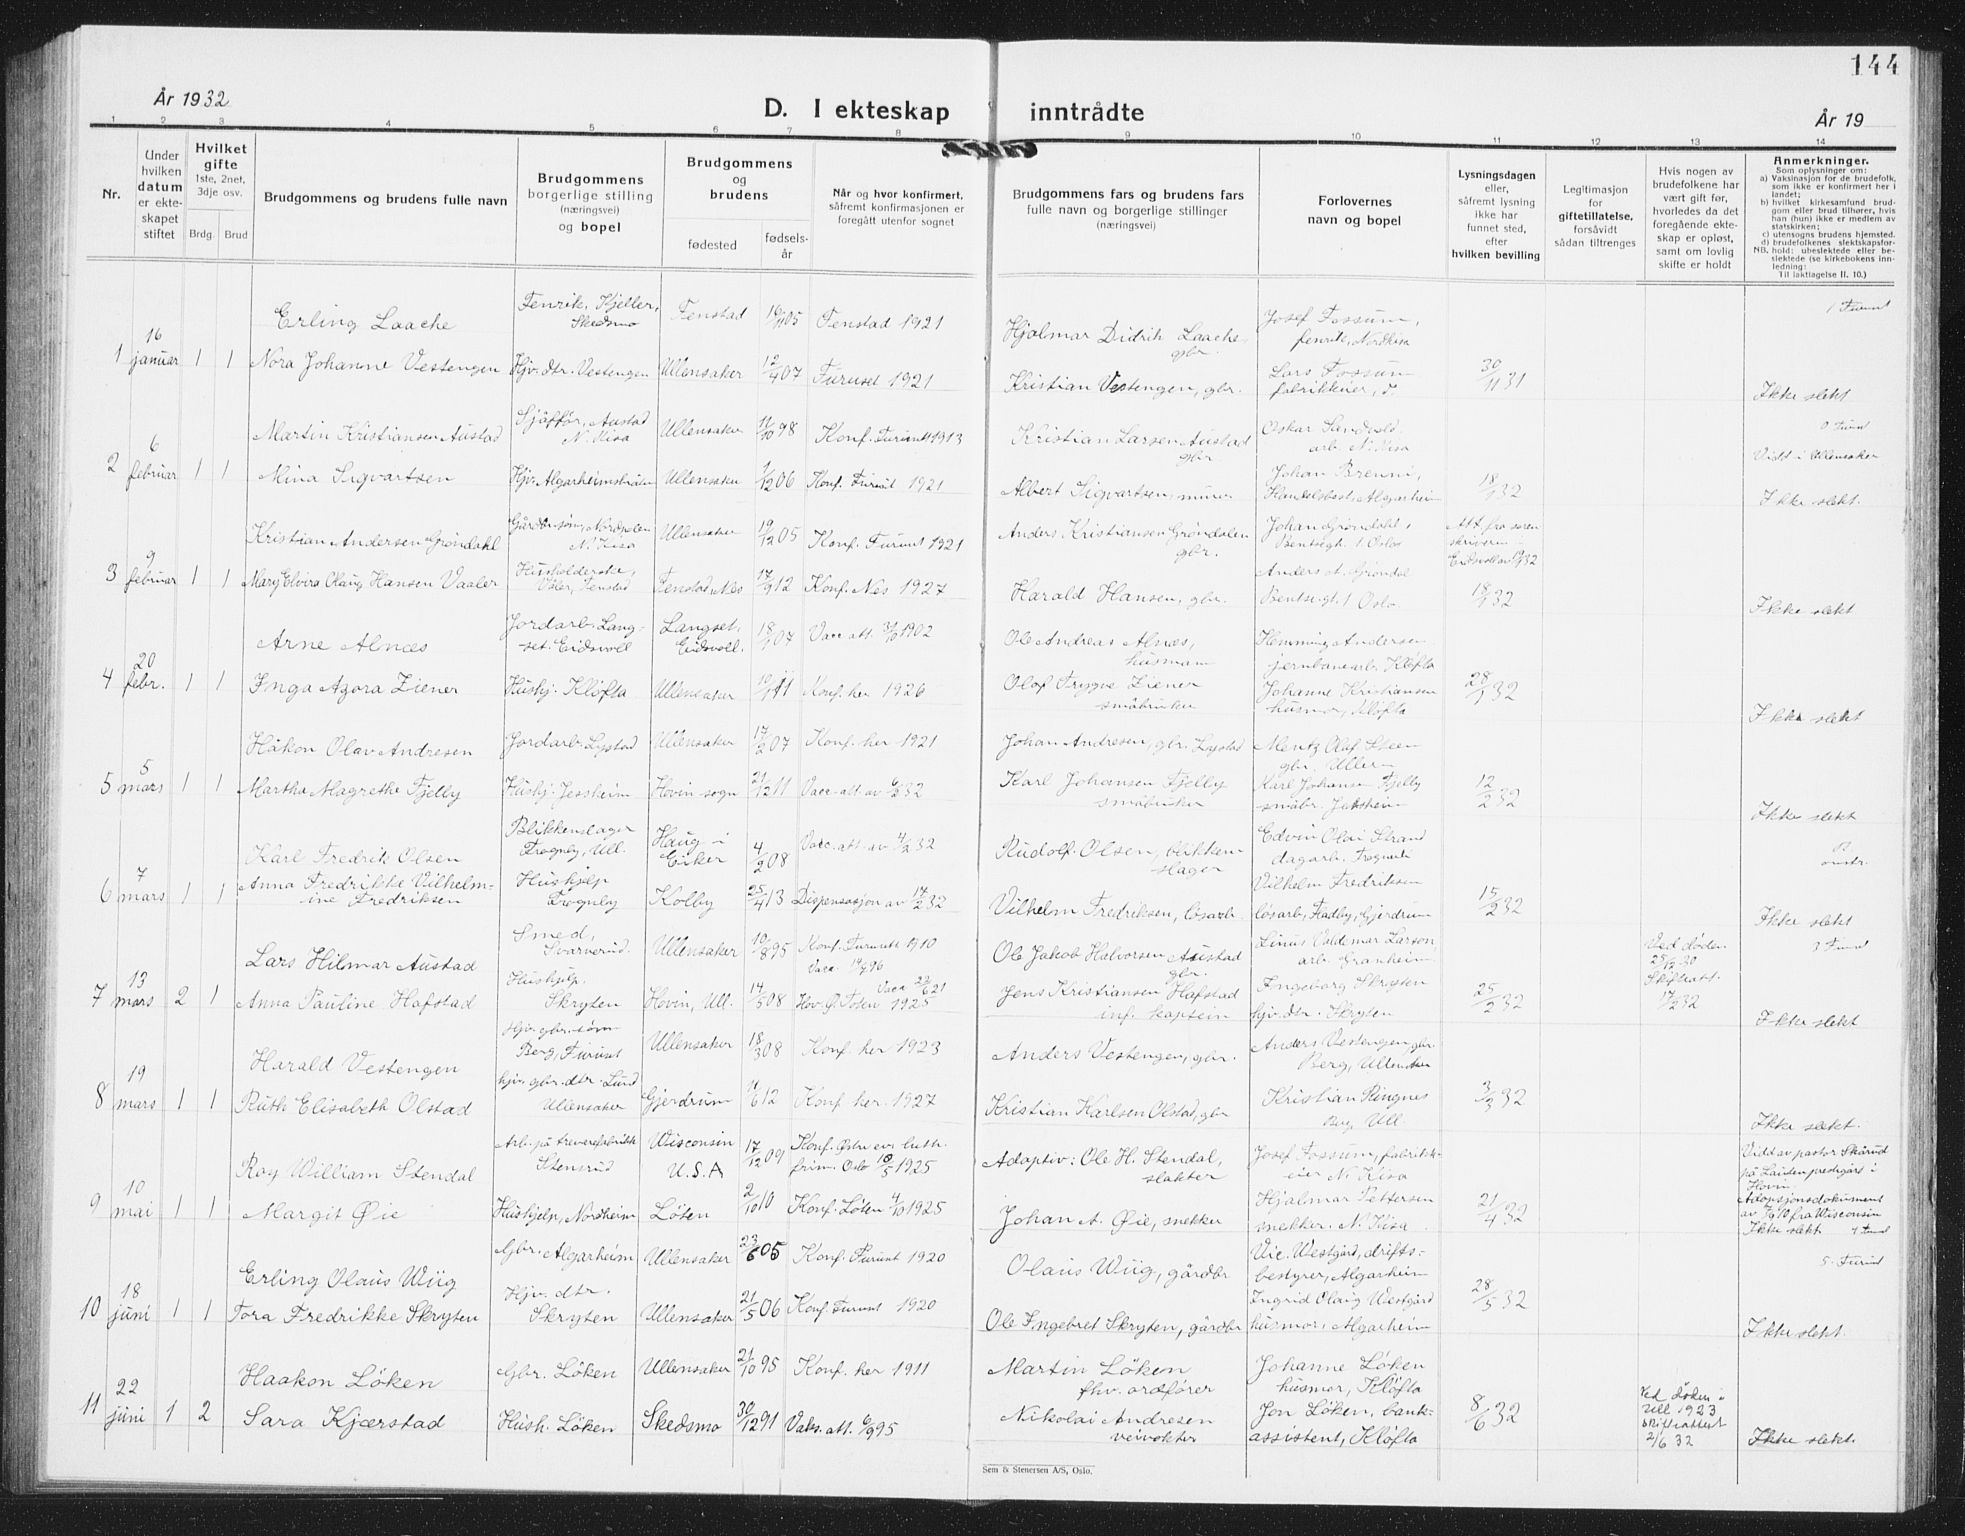 144
År 1932
D. I ekteskap inntrådte
År 19
1 2 3 4 5 6 7 8 9 10 11 12 13 14
Nr.
Under
hvilken
datum
er ekte-
skapet
stiftet
Hvilket
gifte
1ste, 2net,
3dje osv.
Brdg. Brud
Brudgommens og brudens fulle navn
Brudgommens
borgerlige stilling
(næringsvei)
og bopel
Brudgommens
og
brudens
fødested
fødsels-
år
Når og hvor konfirmert,
såfremt konfirmasjonen er
foregått utenfor sognet
Brudgommens fars og brudens fars
fulle navn og borgerlige stillinger
(næringsvei)
Forlovernes
navn og bopel
Lysningsdagen
eller,
såfremt lysning
ikke har
funnet sted,
efter
hvilken bevilling
Legitimasjon
for
giftetillatelse,
forsåvidt
sådan tiltrenges
Hvis nogen av
brudefolkene har
vært gift før,
hvorledes da det
foregående ekte-
skap er opløst,
samt om lovlig
skifte er holdt
Anmerkninger.
Som oplysninger om:
a) Vaksinasjon for de brudefolk,
som ikke er konfirmert her i
landet;
b) hvilket kirkesamfund brud-
gom eller brud tilhører, hvis
han (hun) ikke er medlem av
statskirken;
c) utensogns brudens hjemsted.
d) brudefolkenes slektskapsfor-
NB. hold: ubeslektede eller be-
slektede (se kirkebokens inn-
ledning:
Til iaktlagelse II. 10.)
1
16
januar
1 1
Erling Laache
Fenrik, Kjeller,
Skedsmo
Fenstad
05
Fenstad 1921
Hjalmar Didrik Laache
gbr.
Josef Fossum,
fenrik, Nordkisa
1 Furust
Nora Johanne Vestengen
Hjv. dtr. Vestengen
Ullensaker
12/4 07
Furuset 1921
Kristian Vestengen, gbr.
Lars Fossum
fabrikkeier,
30/11 31
Ikke slekt
2
6
februar
1 1
Martin Kristiansen Austad
Sjåffør, Austad
N. Kisa
Ullensaker
11/10 98
Konf. Furuset 1913
Kristian Larsen Austad
gbr.
Oskar Sandvold
arb. N. Kisa
Viet i Ullensaker
Mina Sigvartsen
Ullensaker
1/12 06
Konf. Furuset 1921
Albert Sigvartsen, murer
Johan Brenni,
Handelsbest. Algarheim
18/1 32
Ikke slekt.
3
9
februar
1 1
Kristian Andersen Grøndahl
Gårdbr. søn, Nordpolen
N. Kisa
Ullensaker
19/12 05
Konf. Furuset 1921
Anders Kristiansen Grøndalen
gbr.
Johan Grøndahl,
Bentsegt. 1 Oslo
Att. fra soren
skriveren i
Mary Elvira Olaug Hansen Vaaler
Husholderske,
Fenstad
Fenstad, Nes
17/9 12
Konf. Nes 1927
Harald Hansen, gbr.
Anders A. Grøndal
Bentse.gt. 1 Oslo.
18/1 32
Ikke slekt
4
20
febr.
1 1
Arne Alnæs
Jordarb. Lang-
set. Eidsvoll
Langset,
Eidsvoll.
07
Vacc. att. 1902
Ole Andreas Alnæs,
husmann
Hemming Andersen
jernbanearb. Kløfta
Inga Azora Ziener
Hushj. Kløfta
Ullensaker
11
Konf. her 1926
Olaf Trygve Ziener
småbruker
Johanne Kristiansen
husmor, Kløfta
28/1 32
Ikke slekt
5
5
mars
1 1
Håkon Olav Andresen
Jordarb. Lystad
Ullensaker
17/2 07
Konf. her 1921
Johan Andresen, gbr. Lystad
Mentz Olaf Steen
gbr. Ullern
Martha Magrethe Fjelby
Hushj. Jessheim
Hovin sogn
21/12 11
Vacc. att. av 6/2 32
Karl Johansen Fjelby
småbruker
Karl Johansen Fjelby
småbr. Jessheim
12/2 32
Ikke slekt
6
7
mars
1 1
Karl Fredrik Olsen
Blikkenslager
Trogneby, Ull.
Haug i
Eiker
4/2 08
Vacc. att. av 4/2 32
Rudolf Olsen, blikken-
slager
Edvin Olai Strand
dagarb.
Anna Fredrikke Vilhelm-
ine Fredriksen
Hushjelp
Trogneby
Kolby
25/4 13
Dispensasjon av 17/2 32
Vilhelm Fredriksen, løsarb.
Vilhelm Fredriksen
løsarb, Fladby, Gjerdrum
15/2 32
Ikke slekt
7
13
mars
2 1
Lars Hilmar Austad
Smed,
Svarverud.
Ullensaker
10/8 95
Konf. Furuset 1910
Ole Jakob Halvorsen Austad
gbr.
Linus Valdemar Larson
arb. Granheim
Ved døden
25/12 30
Skifteatt.
17/2 32
3 Furust
Anna Pauline Hafstad
Hushjelp.
Skryten
Hovin, Ull.
14/5 08
Hov. Ø. Toten 1925
Jens Kristiansen Hafstad
inf. kaptein
Ingeborg Skryten
hjv. dtr. Skryten
25/2 32
Ikke slekt
8
19
mars
1 1
Harald Vestengen
Hjv. gbr. sønn
Berg, Furuset
Ullensaker
18/3 08
Konf. her 1923
Anders Vestengen, gbr.
Anders Vestengen gbr.
Berg, Ullensaker
Ruth Elisabeth Olstad
hjv. gbr. dtr. Lund
Ullensaker
Gjerdrum
11/6 12
Konf. her. 1927
Kristian Karlsen Olstad, gbr
Kristian Ringnes
Berg, Ull.
3/3 32
Ikke slekt.
9
10
mai
1 1
Roy William Stendal
Arb. på trevarefabrikk
Stensrud
Wisconsin
U.S.A
17/12 09
Konf. Østre ev. luth.
frim. Oslo 10/5 1925
Adoptiv: Ole H. Stendal,
slakter
Josef Fossum, fabrikk-
eier N. Kisa
Viet av pastor Skårud
på Laiden prestegård i
Hovin.
Adopsjonsdokument
av 7/9 10 fra Wisconsin
Ikke slekt 4 Furust
Margit Øie
Hushjelp, Nordheim
Løten
2/10 10
Konf. Løten 4/10 1925
Johan A. Øie, snekker
Hjalmar Pettersen
snekker. N. Kisa
21/4 32
10
18
juni
1 1
Erling Olaus Wiig
Gbr. Algarheim
Ullensaker
23/6 05
Konf. Furuset 1920
Olaus Wiig, gårdbr
Vic. Westgård, drifts-
bestyrer, Algarheim
5. Furust
Tora Fredrikke Skryten
Hjv. dtr.
Skryten
Ullensaker
21/5 06
Konf. Furuset 1920
Ole Ingebret Skryten, gårdbr
Ingrid Olaug Westgård
husmor, Algarheim
28/5 32
Ikke slekt.
11
22
juni
1 2
Haakon Løken
Gbr. Løken
Ullensaker
21/10 95
Konf. her 1911
Martin Løken
fhv. ordfører
Johanne Løken
husmor, Kløfta
Ved døden i
1923
Skifteattest
2/6 32
Sara Kjærstad
Hush. Løken
Skedsmo
30/12 91
Vaks. att. 6/9 95
Nikolai Andresen
veivokter
Jon Løken, bank-
assistent, Kløfta
8/6 32
Ikke slekt.
Sem & Stenersen A/S, Oslo.